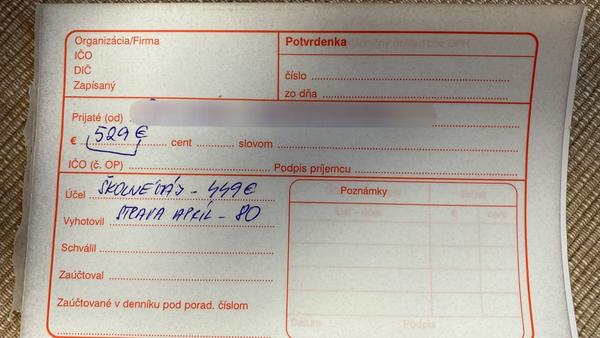 Organizácia/Firma
IČO
DIČ
Zapísaný
Potvrdenka
číslo
zo dňa
Prijaté (od)
€ 529 € cent slovom
IČO (č. OP) Podpis príjemcu
Účel ŠKOLNÉ - 449 €
Vyhotovil STRAVA APRÍL - 80
Schválil
Zaúčtoval
Zaúčtované v denníku pod porad. číslom
Poznámky